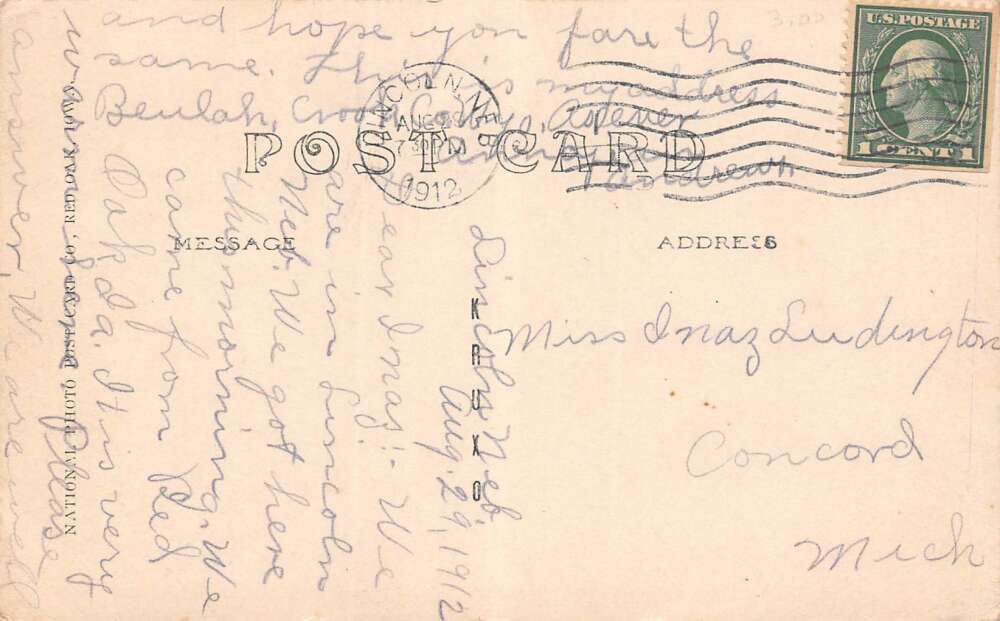 and hope you fare the
same. This is my address
Beulah, Crook Co. Wyo.
3.00
U.S. POSTAGE
1 CENT 1
LINCOLN, NEBR
AUG 29
7 30 PM
1912
POST CARD
MESSAGE
ADDRESS
KRUXO
NATIONAL PHOTO POST CARD CO., RED OAK, IOWA
Lincoln Neb
Aug. 29, 1912
Dear Inaz:- We
are in Lincoln
Neb. We got here
this morning. We
came from Red
Oak Ia. It is very
Please
answer, We are well
Miss Inaz Ludington
Concord
Mich